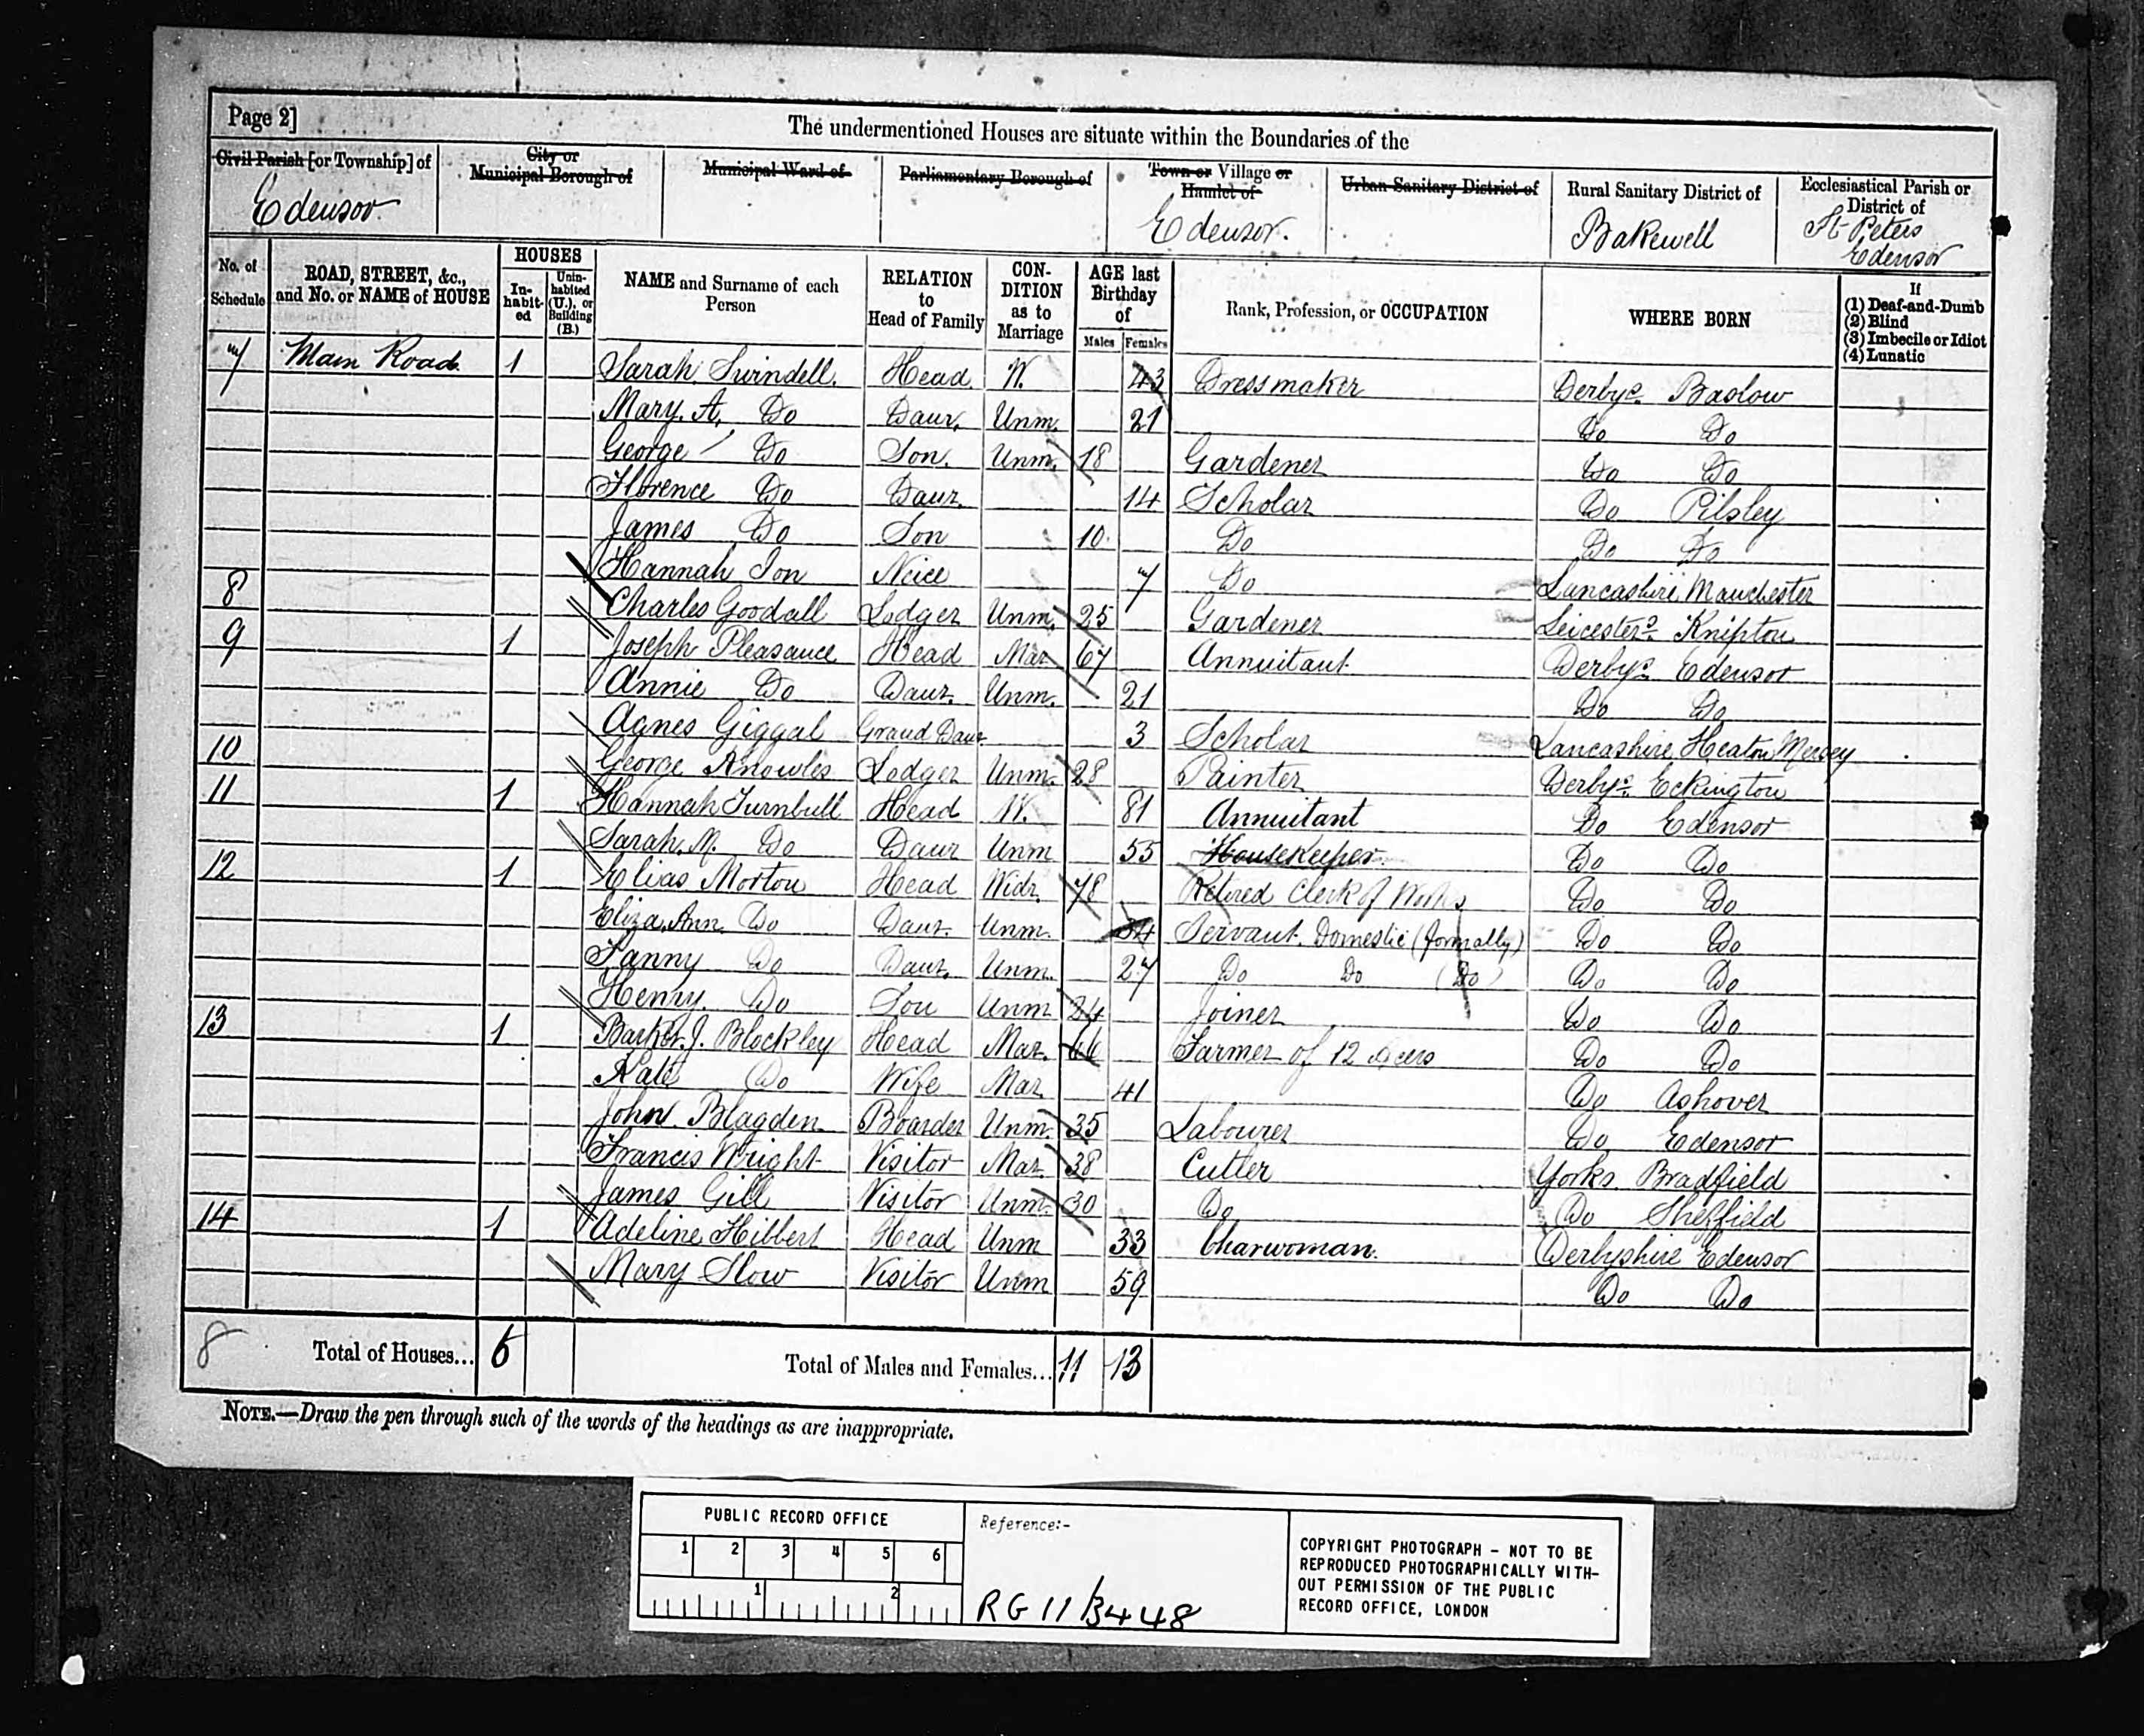 Page 2]
The undermentioned Houses are situate within the Boundaries of the
Civil Parish [or Township] of
City or Municipal Borough of
Municipal Ward of
Parliamentary Borough of
Town or Village or Hamlet of
Urban Sanitary District of
Rural Sanitary District of
Ecclesiastical Parish or District of
Edensor
Edensor.
Bakewell
St Peters Edensor
No. of Schedule
ROAD, STREET, &c., and No. or NAME of HOUSE
HOUSES
In-habit-ed
Unin-habited (U.), or Building (B.)
NAME and Surname of each Person
RELATION to Head of Family
CON-DITION as to Marriage
AGE last Birthday of
Males
Females
Rank, Profession, or OCCUPATION
WHERE BORN
If (1) Deaf-and-Dumb (2) Blind (3) Imbecile or Idiot (4) Lunatic
7 Main Road 1 Sarah Swindell. Head W. 43 Dressmaker Derbys. Baslow
Mary. A. Do Daur. Unm. 21 Do Do
George Do Son. Unm. 18 Gardener Do Do
Florence Do Daur. 14 Scholar Do Pilsley
James Do Son 10 Do Do Do
Hannah Ion Neice 7 Do Lancashire Manchester
8 Charles Goodall Lodger Unm. 25 Gardener Leicesters. Knipton
9 1 Joseph Pleasance Head Mar 67 Annuitant Derbys. Edensor
Annie Do Daur. Unm. 21 Do Do
Agnes Giggal Grand Daur. 3 Scholar Lancashire Heaton Mersey
10 George Knowles Lodger Unm. 28 Painter Derbys. Eckington
11 1 Hannah Turnbull Head W. 81 Annuitant Do Edensor
Sarah. M. Do Daur Unm 55 Housekeeper Do Do
12 1 Elias Morton Head Widr. 78 Retired Clerk of Works Do Do
Eliza Ann Do Daur. Unm. 34 Servant. Domestic (formally) Do Do
Fanny Do Daur. Unm. 27 Do Do (Do) Do Do
Henry. Do Son Unm 24 Joiner Do Do
13 1 Barker. J. Blockley Head Mar. 66 Farmer of 12 Acers Do Do
Kate Do Wife Mar 41 Do Ashover
John Blagden Boarder Unm. 35 Labourer Do Edensor
Francis Wright Visitor Mar. 38 Cutler Yorks. Bradfield
James Gill Visitor Unm. 30 Do Do Sheffield
14 1 Adeline Hibbert Head Unm 33 Charwoman. Derbyshire Edensor
Mary Slow Visitor Unm 59 Do Do
8 Total of Houses... 6 Total of Males and Females... 11 13
NOTE.—Draw the pen through such of the words of the headings as are inappropriate.
PUBLIC RECORD OFFICE
1 2 3 4 5 6
1 2
Reference:-
RG 11/3448
COPYRIGHT PHOTOGRAPH - NOT TO BE
REPRODUCED PHOTOGRAPHICALLY WITH-
OUT PERMISSION OF THE PUBLIC
RECORD OFFICE, LONDON